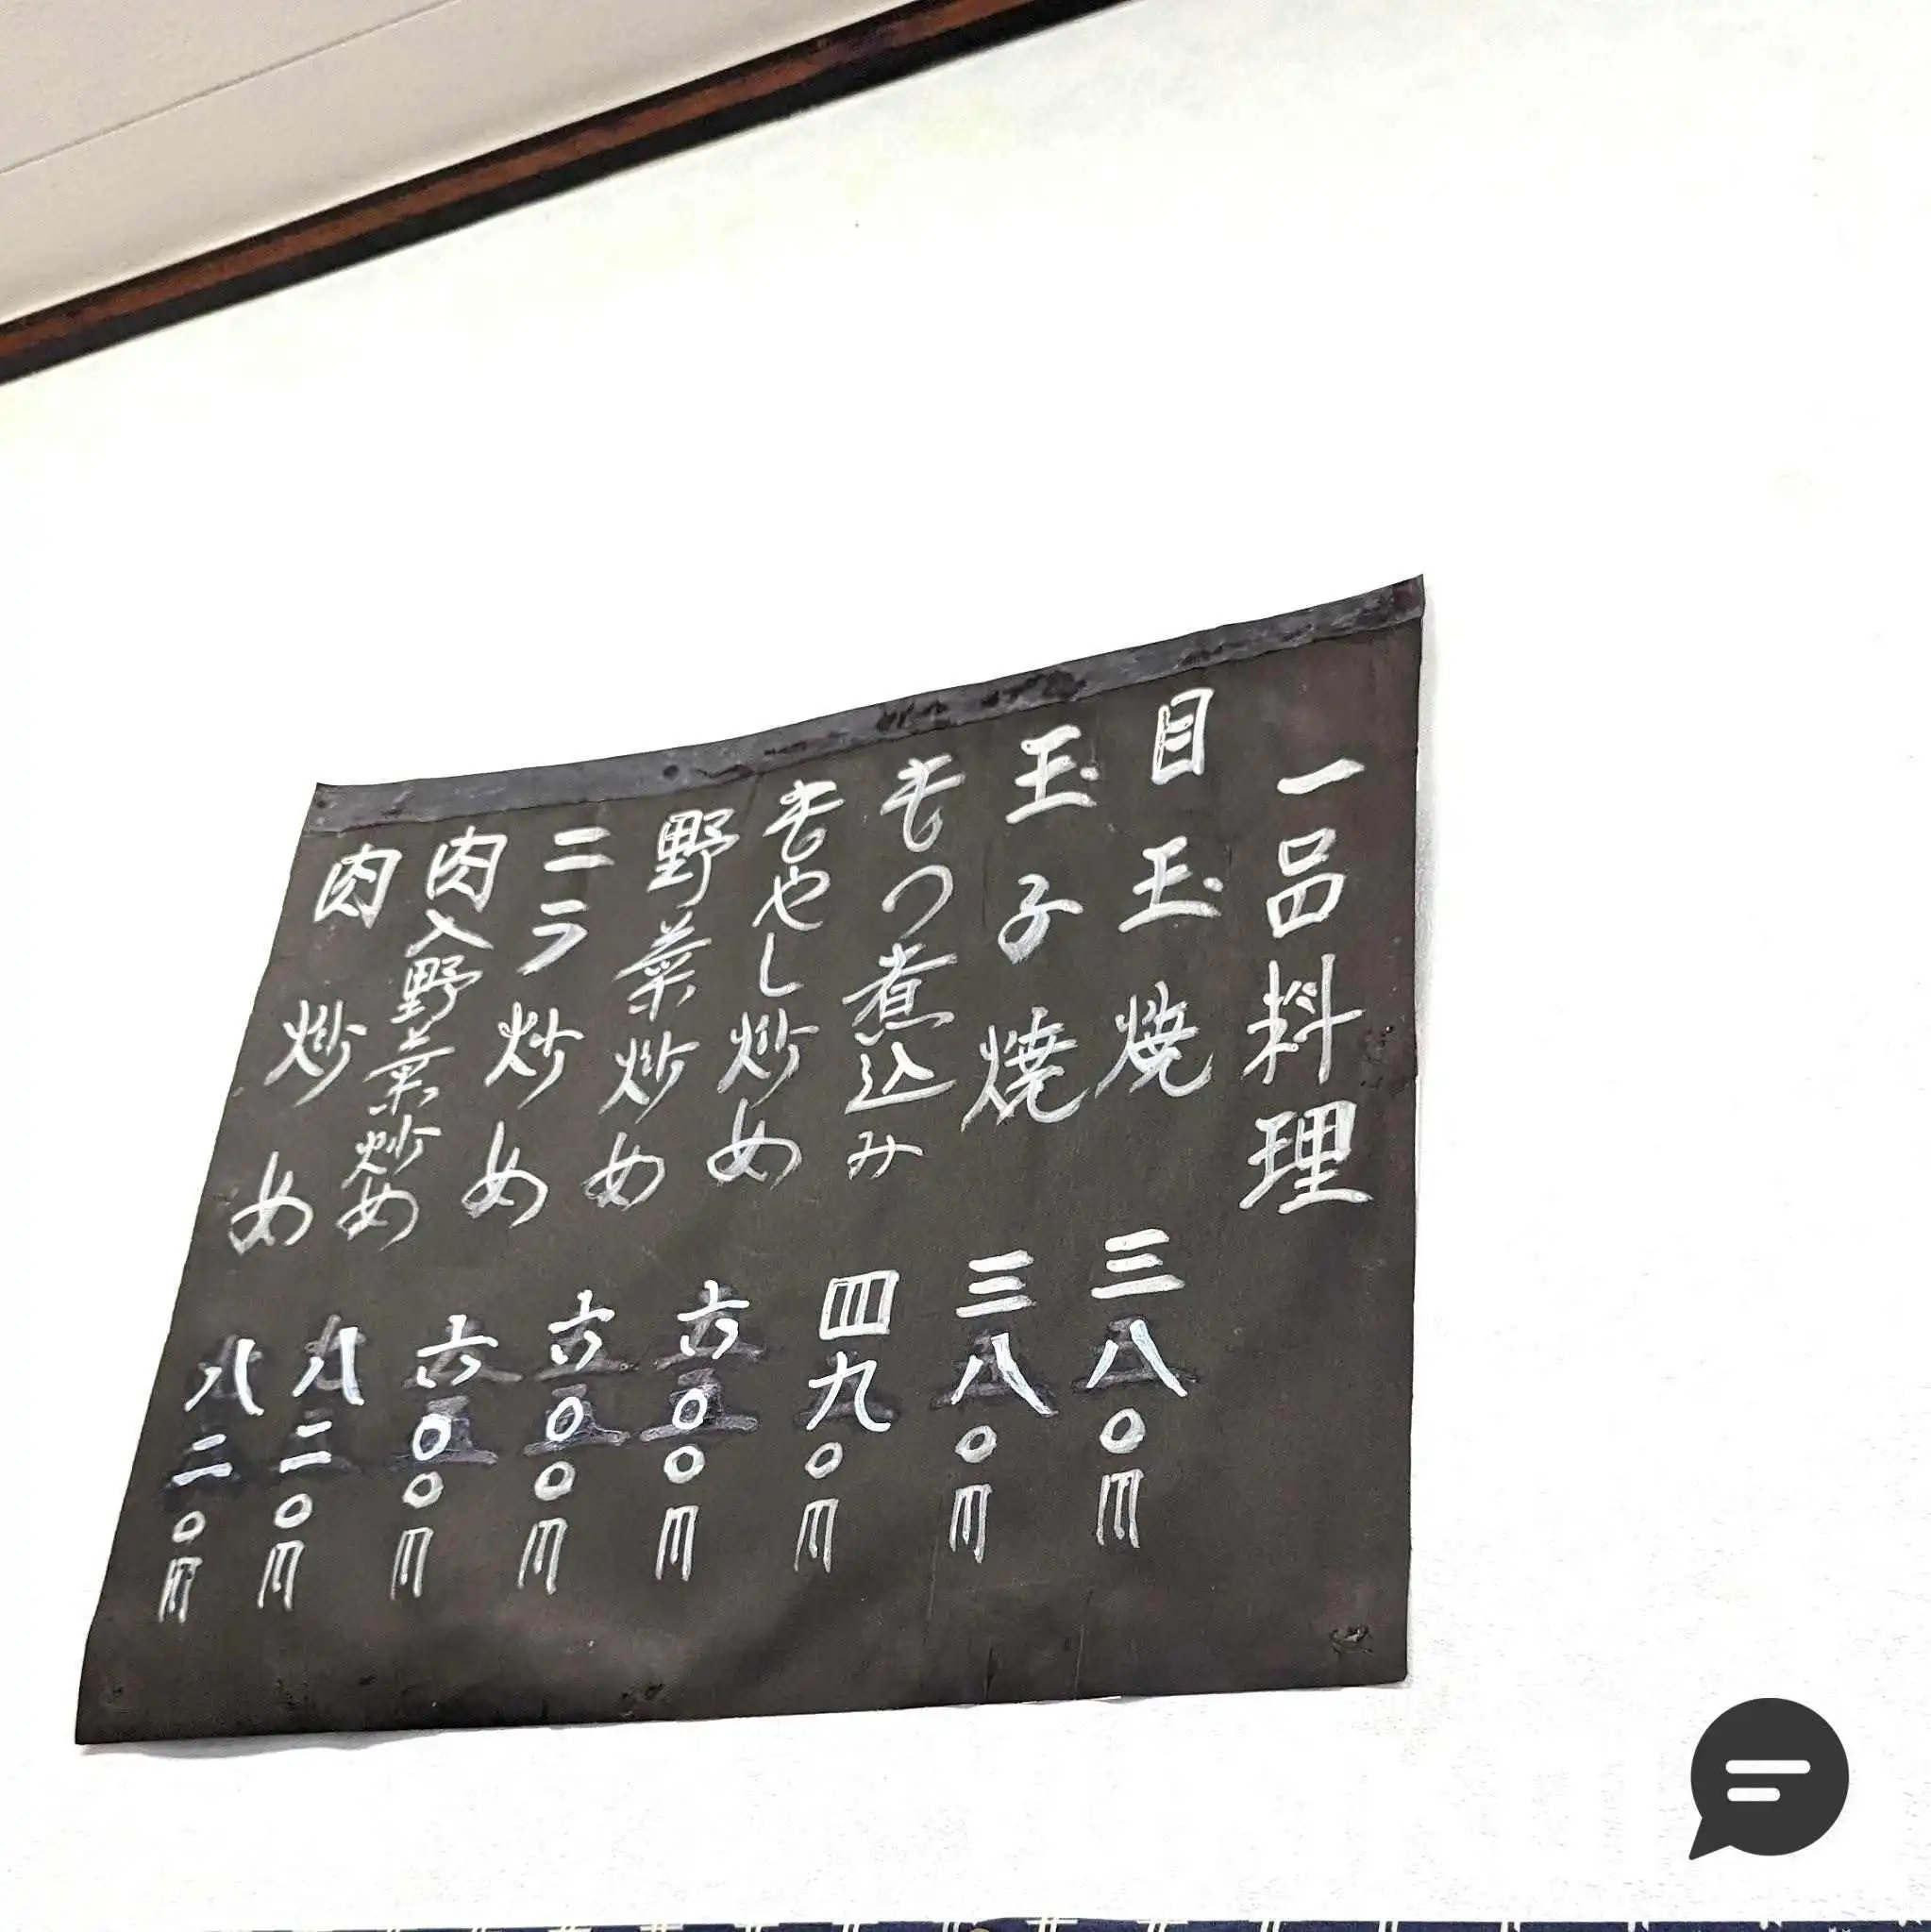 一品料理
目玉焼 三八〇円
玉子焼 三八〇円
もつ煮込み 四九〇円
もやし炒め 六〇〇円
野菜炒め 六〇〇円
ニラ炒め 六〇〇円
肉入野菜炒め 八二〇円
肉炒め 八二〇円